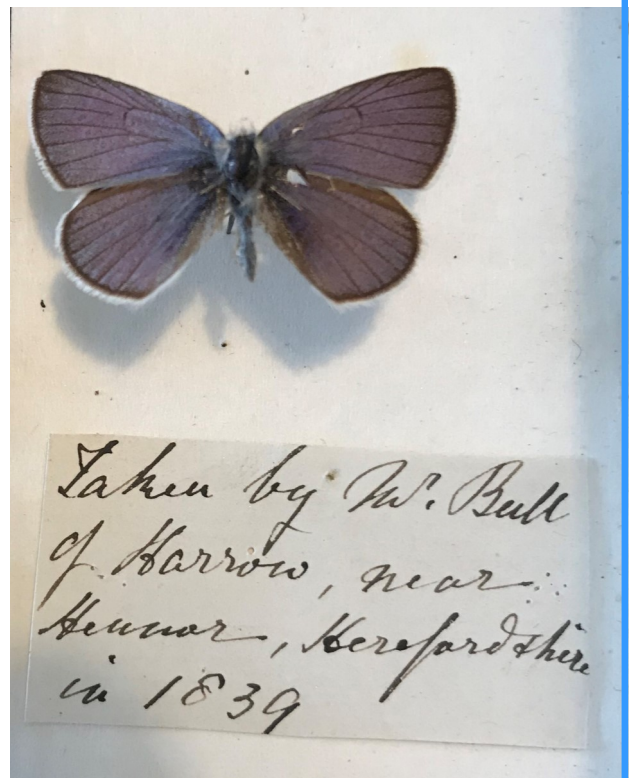 Taken by Mr. Bull
of Harrow, near
Hennor, Herefordshire
in 1839